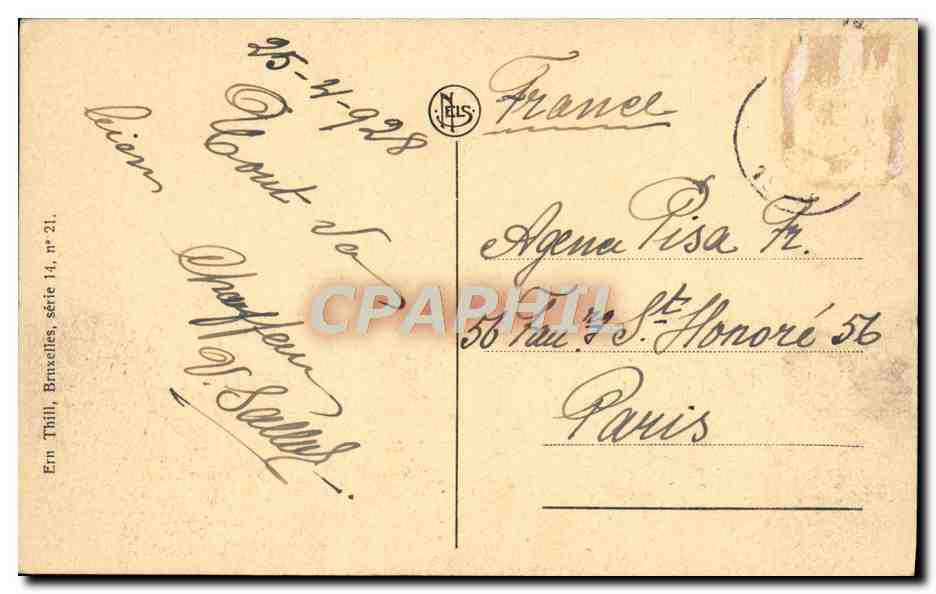 25-4-928
Tout va
bien
Chauffeur
V.
Ern Thill, Bruxelles, série 14, n° 21.
NELS
France
Agence Pisa Fr.
56 Fau.rg St. Honoré 56
Paris
CPAPHIL